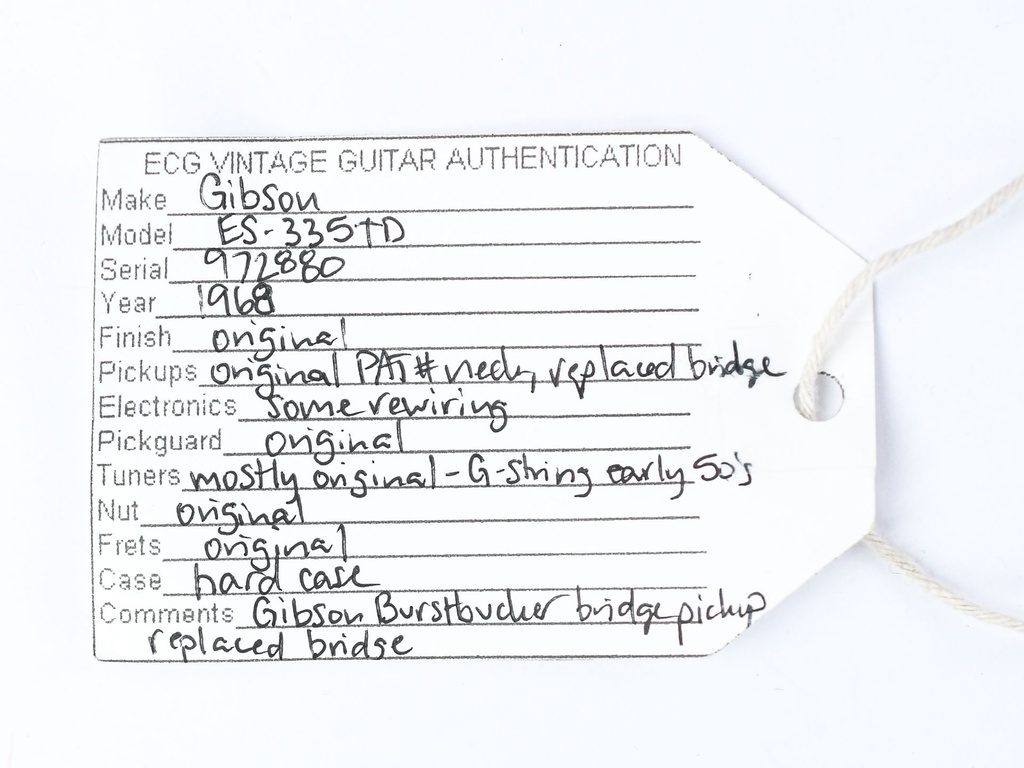 ECG VINTAGE GUITAR AUTHENTICATION
Make Gibson
Model ES-335TD
Serial 972880
Year 1968
Finish original
Pickups original PAT# neck, replaced bridge
Electronics some rewiring
Pickguard original
Tuners mostly original - G-string early 50's
Nut original
Frets original
Case hard case
Comments Gibson Burstbucker bridge pickup
replaced bridge